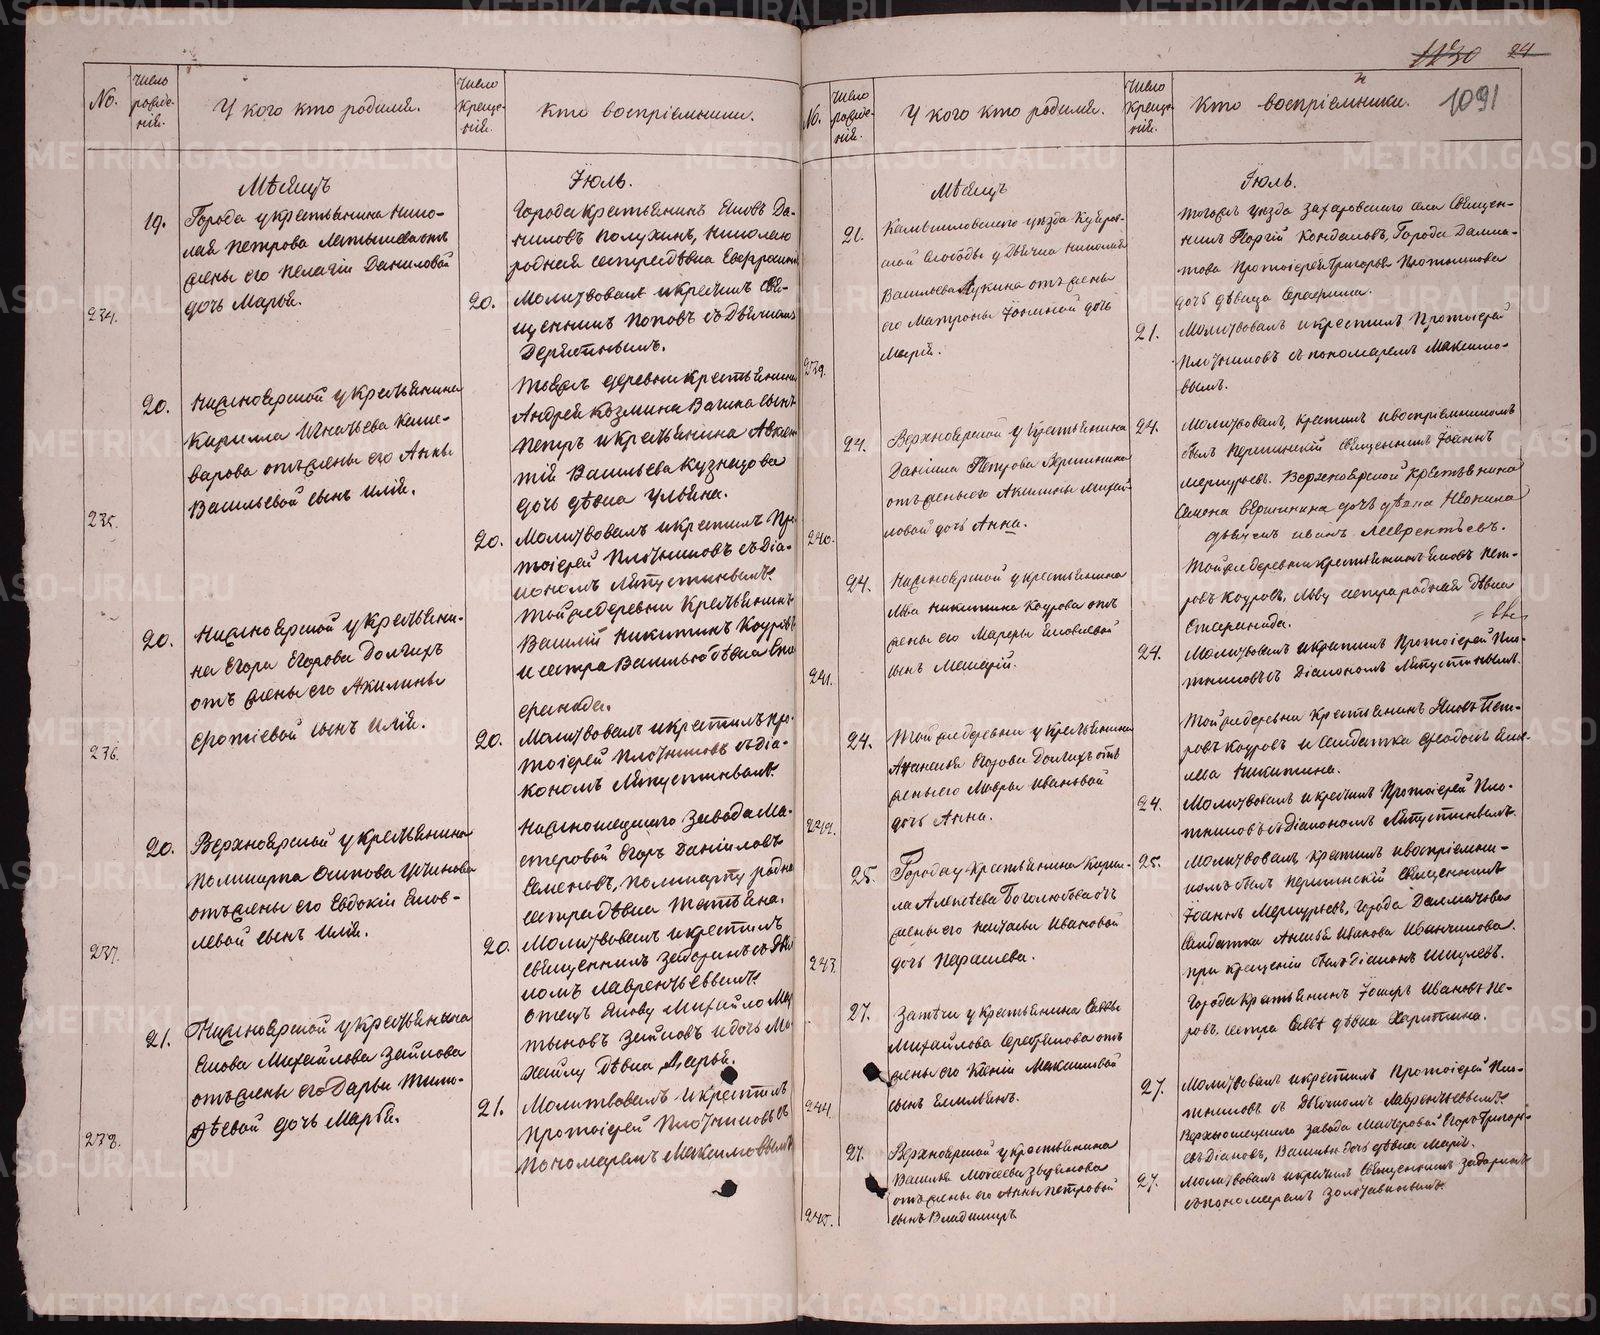 1230 24
1091
No.
Число рожде-ній.
У кого кто родился.
Число креще-ній.
Кто воспріемники.
Мѣсяцъ
Іюль.
234.
19.
Города у крестьянина Нико-
лая Петрова Латышева отъ
жены его Пелагіи Даниловой
дочь Марья.
Города крестьянинъ Яковъ Да-
ниловъ Полухинъ, Николаю
родная сестра дѣвка
20.
Молитвовалъ и крестилъ Свя-
щенникъ Поповъ съ Дьячкомъ
235.
20.
Нижноярской у крестьянина
Кирилла Игнатьева Каше-
варова отъ жены его Анны
Васильевой сынъ Илія.
деревни крестьянина
Андрея Козмина Вагина сынъ
Петръ и крестьянина
Васильева Кузнецова
дочь дѣвка Ульяна.
20.
Молитвовалъ и крестилъ Про-
тоіерей Плотниковъ съ Діа-
кономъ
236.
20.
Нижноярской у крестьяни-
на Егора Егорова Долгихъ
отъ жены его Акилины
Фотіевой сынъ Илія.
Той же деревни Крестьянинъ
Василій Никитинъ Кауровъ
и сестра Василью дѣвка Сте-
фанида.
20.
Молитвовалъ и крестилъ Про-
тоіерей Плотниковъ съ Діа-
кономъ
237.
20.
Верхноярской у крестьянина
Поликарпа Осипова
отъ жены его Евдокіи Яков-
левой сынъ Илія.
завода Ма-
стеровой Егоръ Даніиловъ
Семеновъ, Поликарпу родна
сестра дѣвка Татьяна.
20.
Молитвовалъ и крестилъ
священникъ Задоринъ съ Дьяч-
комъ Лаврентьевымъ.
238.
21.
Нижноярской у крестьянина
Якова Михайлова Зайкова
отъ жены его Дарьи Тимо-
ѳеевой дочь Марья.
Отецъ Якову Михайло Мар-
тыновъ Зайковъ и дочь Ми-
хайлу дѣвка Дарья.
21.
Молитвовалъ и крестилъ
Протоіерей Плотниковъ съ
Пономаремъ Максимовымъ
No.
Число рожде-ній.
У кого кто родился.
Число креще-ній.
Кто воспріемники.
Мѣсяцъ
Іюль.
239.
21.
Камышловскаго уѣзда
слободы у Дьячка Николая
Васильева Лукина отъ жены
его Матроны Іониной дочь
Марія.
уѣзда Захаровскаго села Священ-
никъ Георгій Кондаковъ, Города Далма-
това Протоіерея Григорья Плотникова
дочь дѣвица Серафима.
21.
Молитвовалъ и крестилъ Протоіерей
Плотниковъ съ пономаремъ Максимо-
вымъ.
240.
24.
Верхноярской у крестьянина
Даніила Петрова Вершинина
отъ жены его Акилины Михай-
ловой дочь Анна.
24.
Молитвовалъ, крестилъ и воспріемникомъ
былъ Першинскій священникъ Іоаннъ
Меркурьевъ. Верхноярской крестьянина
Семена Вершинина дочь дѣвка
Иванъ Лаврентьевъ.
241.
24.
Нижноярской у крестьянина
Льва Никитина Каурова отъ
жены его Марѳы Яковлевой
сынъ
Той же деревни крестьянинъ Яковъ Пет-
ровъ Кауровъ, Льву сестра родная дѣвка
Стефанида.
24.
Молитвовалъ и крестилъ Протоіерей Пло-
тниковъ съ Діакономъ
242.
24.
Той же деревни у крестьянина
Аѳанасья Егорова Долгихъ отъ
жены его Мавры Ивановой
дочь Анна.
Той же деревни Крестьянинъ Яковъ Пет-
ровъ Кауровъ и Солдатка
Никитина.
24.
Молитвовалъ и крестилъ Протоіерей Пло-
тниковъ съ Діакономъ
243.
25.
Города у Крестьянина Кирил-
ла Алексѣева Боголюбова отъ
жены его Натальи Ивановой
дочь Парасковья.
25.
Молитвовалъ, крестилъ и воспріемни-
комъ былъ Першинскій Священникъ
Іоаннъ Меркурьевъ, Города Далматова
Солдатка Иванова
При крещеніи былъ Діаконъ
244.
27.
Затечи у крестьянина Саввы
Михайлова отъ
жены его Ксеніи Максимовой
сынъ Емильянъ.
Города Крестьянинъ Ивановъ Пе-
ровъ. сестра Саввѣ дѣвка Харитина.
27.
Молитвовалъ и крестилъ Протоіерей Пло-
тниковъ съ Дьячкомъ Лаврентьевымъ.
245.
27.
Верхноярской у крестьянина
Василья Моисеева
отъ жены его Анны Петровой
сынъ Владимиръ
завода Мастеровой Егоръ Григорь-
евъ Діановъ, Василья дочь дѣвка Марія.
27.
Молитвовалъ и крестилъ Священникъ Задоринъ
съ пономаремъ